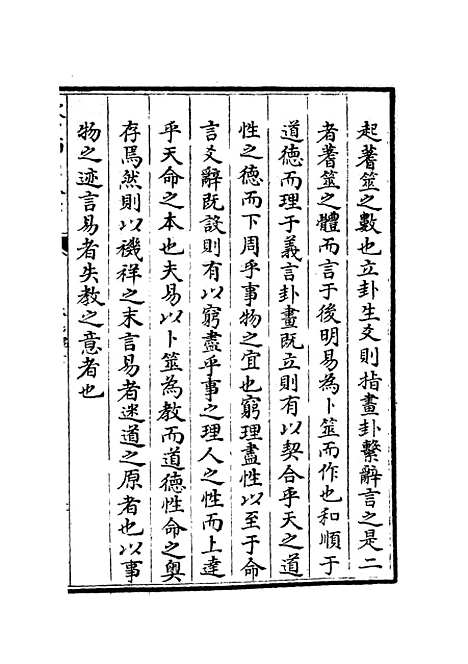 起蓍筮之數也立卦生爻則指畫卦繫辭言之是二
者蓍筮之體而言于後明易為卜筮而作也和順于
道德而理于義言卦畫既立則有以契合乎天之道
性之德而下周乎事物之宜也窮理盡性以至于命
言爻辭既設則有以窮盡乎事之理人之性而上達
乎天命之本也夫易以卜筮為教而道德性命之奥
存焉然則以禨祥之末言易者迷道之原者也以事
物之迹言易者失教之意者也